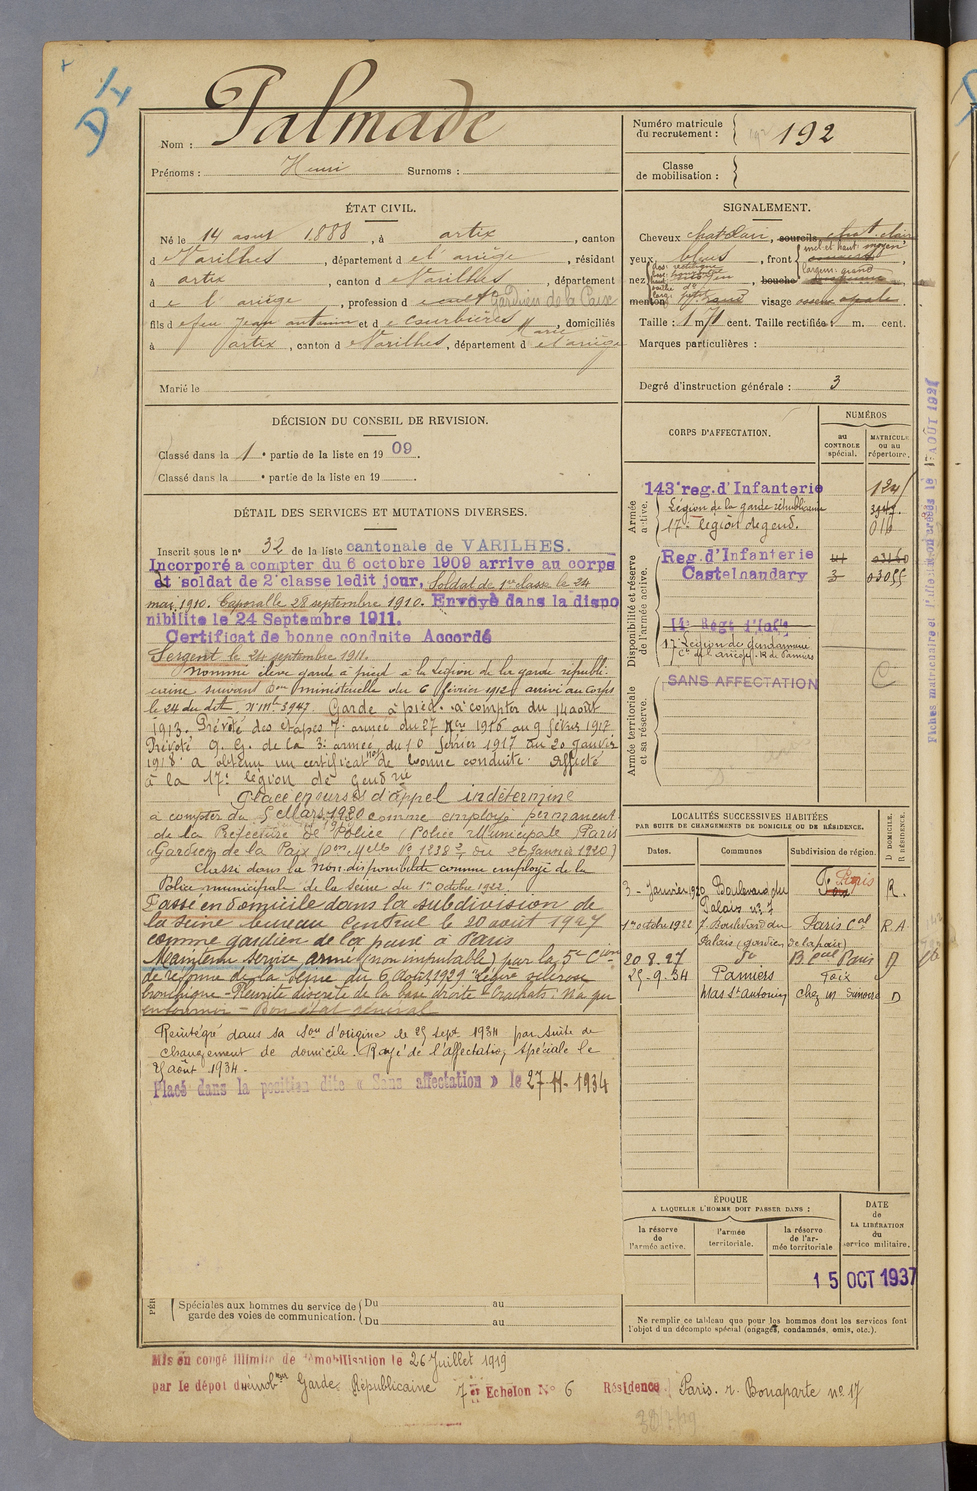 D4
Nom : Palmade
Prénoms : Henri Surnoms :
Numéro matricule du recrutement : 192
Classe de mobilisation :
ÉTAT CIVIL.
Né le 14 aout 1888, à artix, canton
d e Varilhes, département d e l'ariège, résidant
à artix, canton d e Varilhes, département
d e l'ariège, profession d e cult Gardien de la Paix
fils d e feu Jean antoine et d e Courbières Marie, domiciliés
à artix, canton d e Varilhes, département d e l'ariège
Marié le
SIGNALEMENT.
Cheveux chat. clair, sourcils chat. clair
yeux bleus, front incl. et haut: moyen
nez bouche largeur: grand
menton visage ovale
Taille : 1 m 71 cent. Taille rectifiée : m. cent.
Marques particulières :
Degré d'instruction générale : 3
DÉCISION DU CONSEIL DE REVISION.
Classé dans la 1e partie de la liste en 1909.
Classé dans la e partie de la liste en 19
DÉTAIL DES SERVICES ET MUTATIONS DIVERSES.
Inscrit sous le n° 32 de la liste cantonale de VARILHES.
Incorporé a compter du 6 octobre 1909 arrive au corps
et soldat de 2e classe ledit jour, Soldat de 1re classe le 24
mai 1910. Caporal le 28 septembre 1910. Envoyé dans la dispo
nibilite le 24 Septembre 1911.
Certificat de bonne conduite Accordé
Sergent le 24 septembre 1911.
Nommé élève garde à pied à la Légion de la garde républi-
caine suivant Don ministérielle du 6 février 1912 arrivé au Corps
le 24 du dit, n° mle 3947. Garde à pied à compter du 14 août
1913. Prévôté des étapes 7e armée du 27 1916 au 9 février 1917
Prévôté Q. G. de la 3e armée du 10 février 1917 au 20 janvier
1918 a obtenu un certificat de bonne conduite. Affecté
à la 17e légion de Gendrie
Placé en sursis d'appel indéterminé
à compter du 5 Mars 1920 comme employé permanent
de la Préfecture de Police (Police Municipale) Paris
Gardien de la Paix (Don Mlle No 1238 du 26 Janvier 1920)
Classé dans la non-disponibilité comme employé de la
Police municipale de la Seine du 1er Octobre 1922.
Passé en domicile dans la subdivision de
la Seine bureau Central le 20 août 1927
comme gardien de la paix à Paris
Maintenu service armé (non imputable) par la 5e Cion
de réforme de la Seine du 6 Août 1929 "Légère sclérose
bronchique - Pleurite discrète de la base droite - Crachats: n'a pu
en fournir - Bon état général
Réintégré dans sa Son d'origine le 25 Sept 1934 par suite de
changement de domicile. Rayé de l'affectation spéciale le
25 août 1934.
Placé dans la position dite « Sans affectation » le 27-11-1934
Spéciales aux hommes du service de garde des voies de communication.
Du au
Du au
CORPS D'AFFECTATION.
NUMÉROS
au CONTROLE spécial.
MATRICULE ou au répertoire.
Armée active.
143e reg. d'Infanterie
Légion de la garde républicaine 3947.
17e légion de gend.
Disponibilité et réserve de l'armée active.
Reg. d'Infanterie
Castelnaudary
14e Regt d'Infie
17e Légion de Gendarmerie
Cie de l'Ariège R. de Pamiers
Armée territoriale et sa réserve.
SANS AFFECTATION C
LOCALITÉS SUCCESSIVES HABITÉES
PAR SUITE DE CHANGEMENTS DE DOMICILE OU DE RÉSIDENCE.
Dates. Communes Subdivision de région. D DOMICILE. R RÉSIDENCE.
3 - Janvier 1920 Boulevard du Palais n° 7 Paris R.
1er octobre 1922 7. Boulevard du Palais (gardien de la paix) Paris Cal R A
20 8. 27 do B. Cal Paris D
25-9.34 Pamiers Foix
Mas St Antonin chez M D
ÉPOQUE
A LAQUELLE L'HOMME DOIT PASSER DANS :
la réserve de l'armée active.
l'armée territoriale.
la réserve de l'armée territoriale
DATE de LA LIBÉRATION du service militaire.
15 OCT 1937
Ne remplir ce tableau que pour les hommes dont les services font
l'objet d'un décompte spécial (engagés, condamnés, omis, etc.).
Mis en congé illimité de démobilisation le 26 Juillet 1919
par le dépôt démobeur Garde Républicaine 7e Echelon N° 6 Résidence Paris. r. Bonaparte n° 17